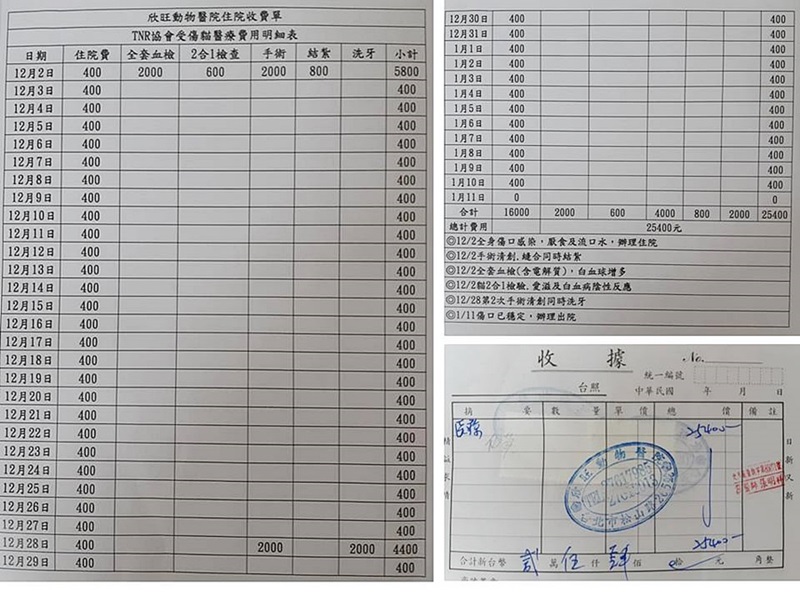 欣旺動物醫院住院收費單
TNR協會受傷貓醫療費用明細表
日期 住院費 全套血檢 2合1檢查 手術 結紮 洗牙 小計
12月2日 400 2000 600 2000 800 5800
12月3日 400 400
12月4日 400 400
12月5日 400 400
12月6日 400 400
12月7日 400 400
12月8日 400 400
12月9日 400 400
12月10日 400 400
12月11日 400 400
12月12日 400 400
12月13日 400 400
12月14日 400 400
12月15日 400 400
12月16日 400 400
12月17日 400 400
12月18日 400 400
12月19日 400 400
12月20日 400 400
12月21日 400 400
12月22日 400 400
12月23日 400 400
12月24日 400 400
12月25日 400 400
12月26日 400 400
12月27日 400 400
12月28日 400 2000 2000 4400
12月29日 400 400
12月30日 400 400
12月31日 400 400
1月1日 400 400
1月2日 400 400
1月3日 400 400
1月4日 400 400
1月5日 400 400
1月6日 400 400
1月7日 400 400
1月8日 400 400
1月9日 400 400
1月10日 400 400
1月11日 0 0
合計 16000 2000 600 4000 800 2000 25400
總計費用 25400元
◎12/2全身傷口感染，厭食及流口水，辦理住院
◎12/2手術清創.縫合同時結紮
◎12/2全套血檢(含電解質)，白血球增多
◎12/2貓2合1檢驗.愛滋及白血病陰性反應
◎12/28第2次手術清創同時洗牙
◎1/11傷口已穩定，辦理出院
收據 No.
統一編號
台照 中華民國 年 月 日
摘要 數量 單價 總價 備註
醫療 25400-
動物醫院
台北市松山
25400-
合計新台幣 貳萬伍仟肆佰 拾 元 角整